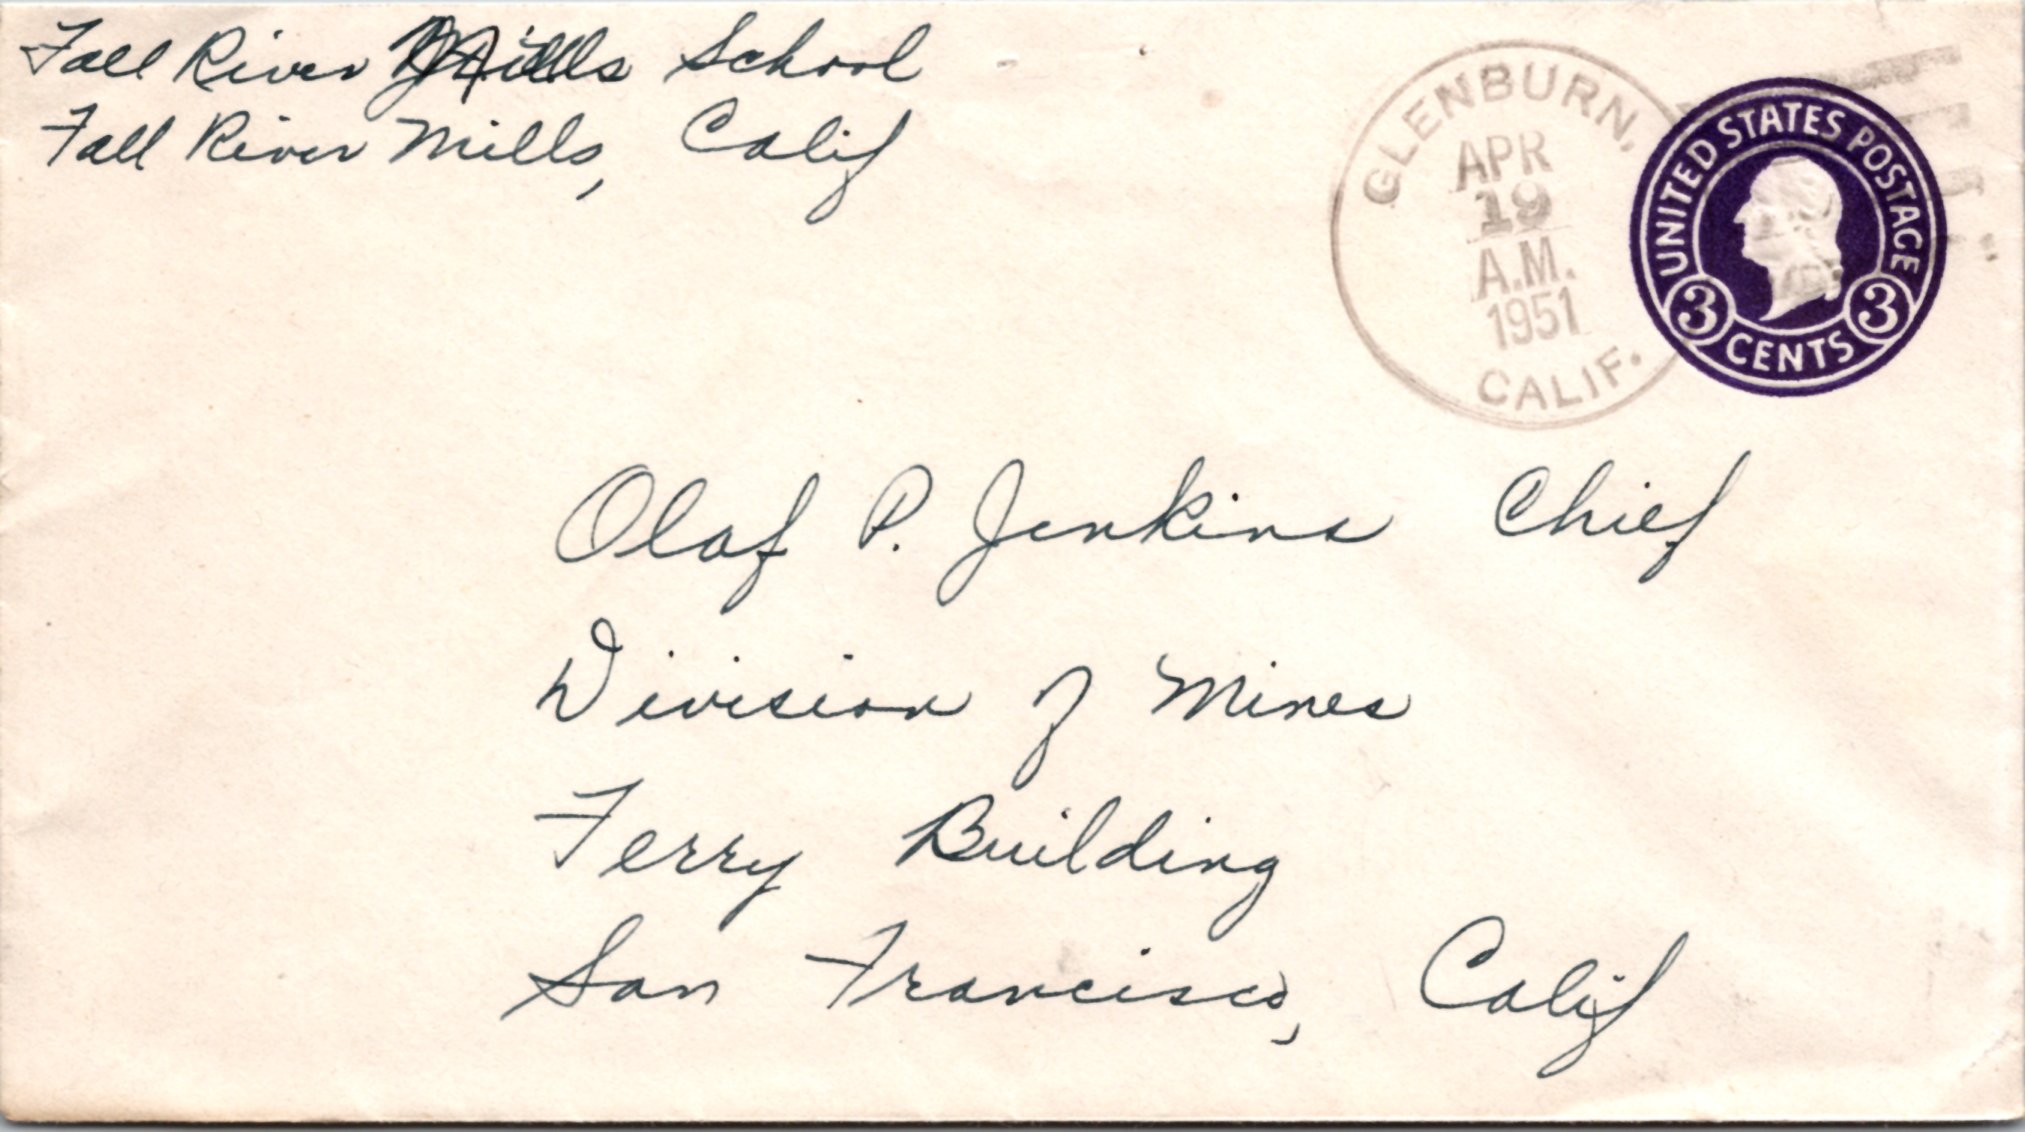 Fall River Mills School
Fall River Mills, Calif
GLENBURN,
APR
19
A.M.
1951
CALIF.
UNITED STATES POSTAGE
3 3
CENTS
Olaf P. Jenkins Chief
Division of Mines
Ferry Building
San Francisco, Calif